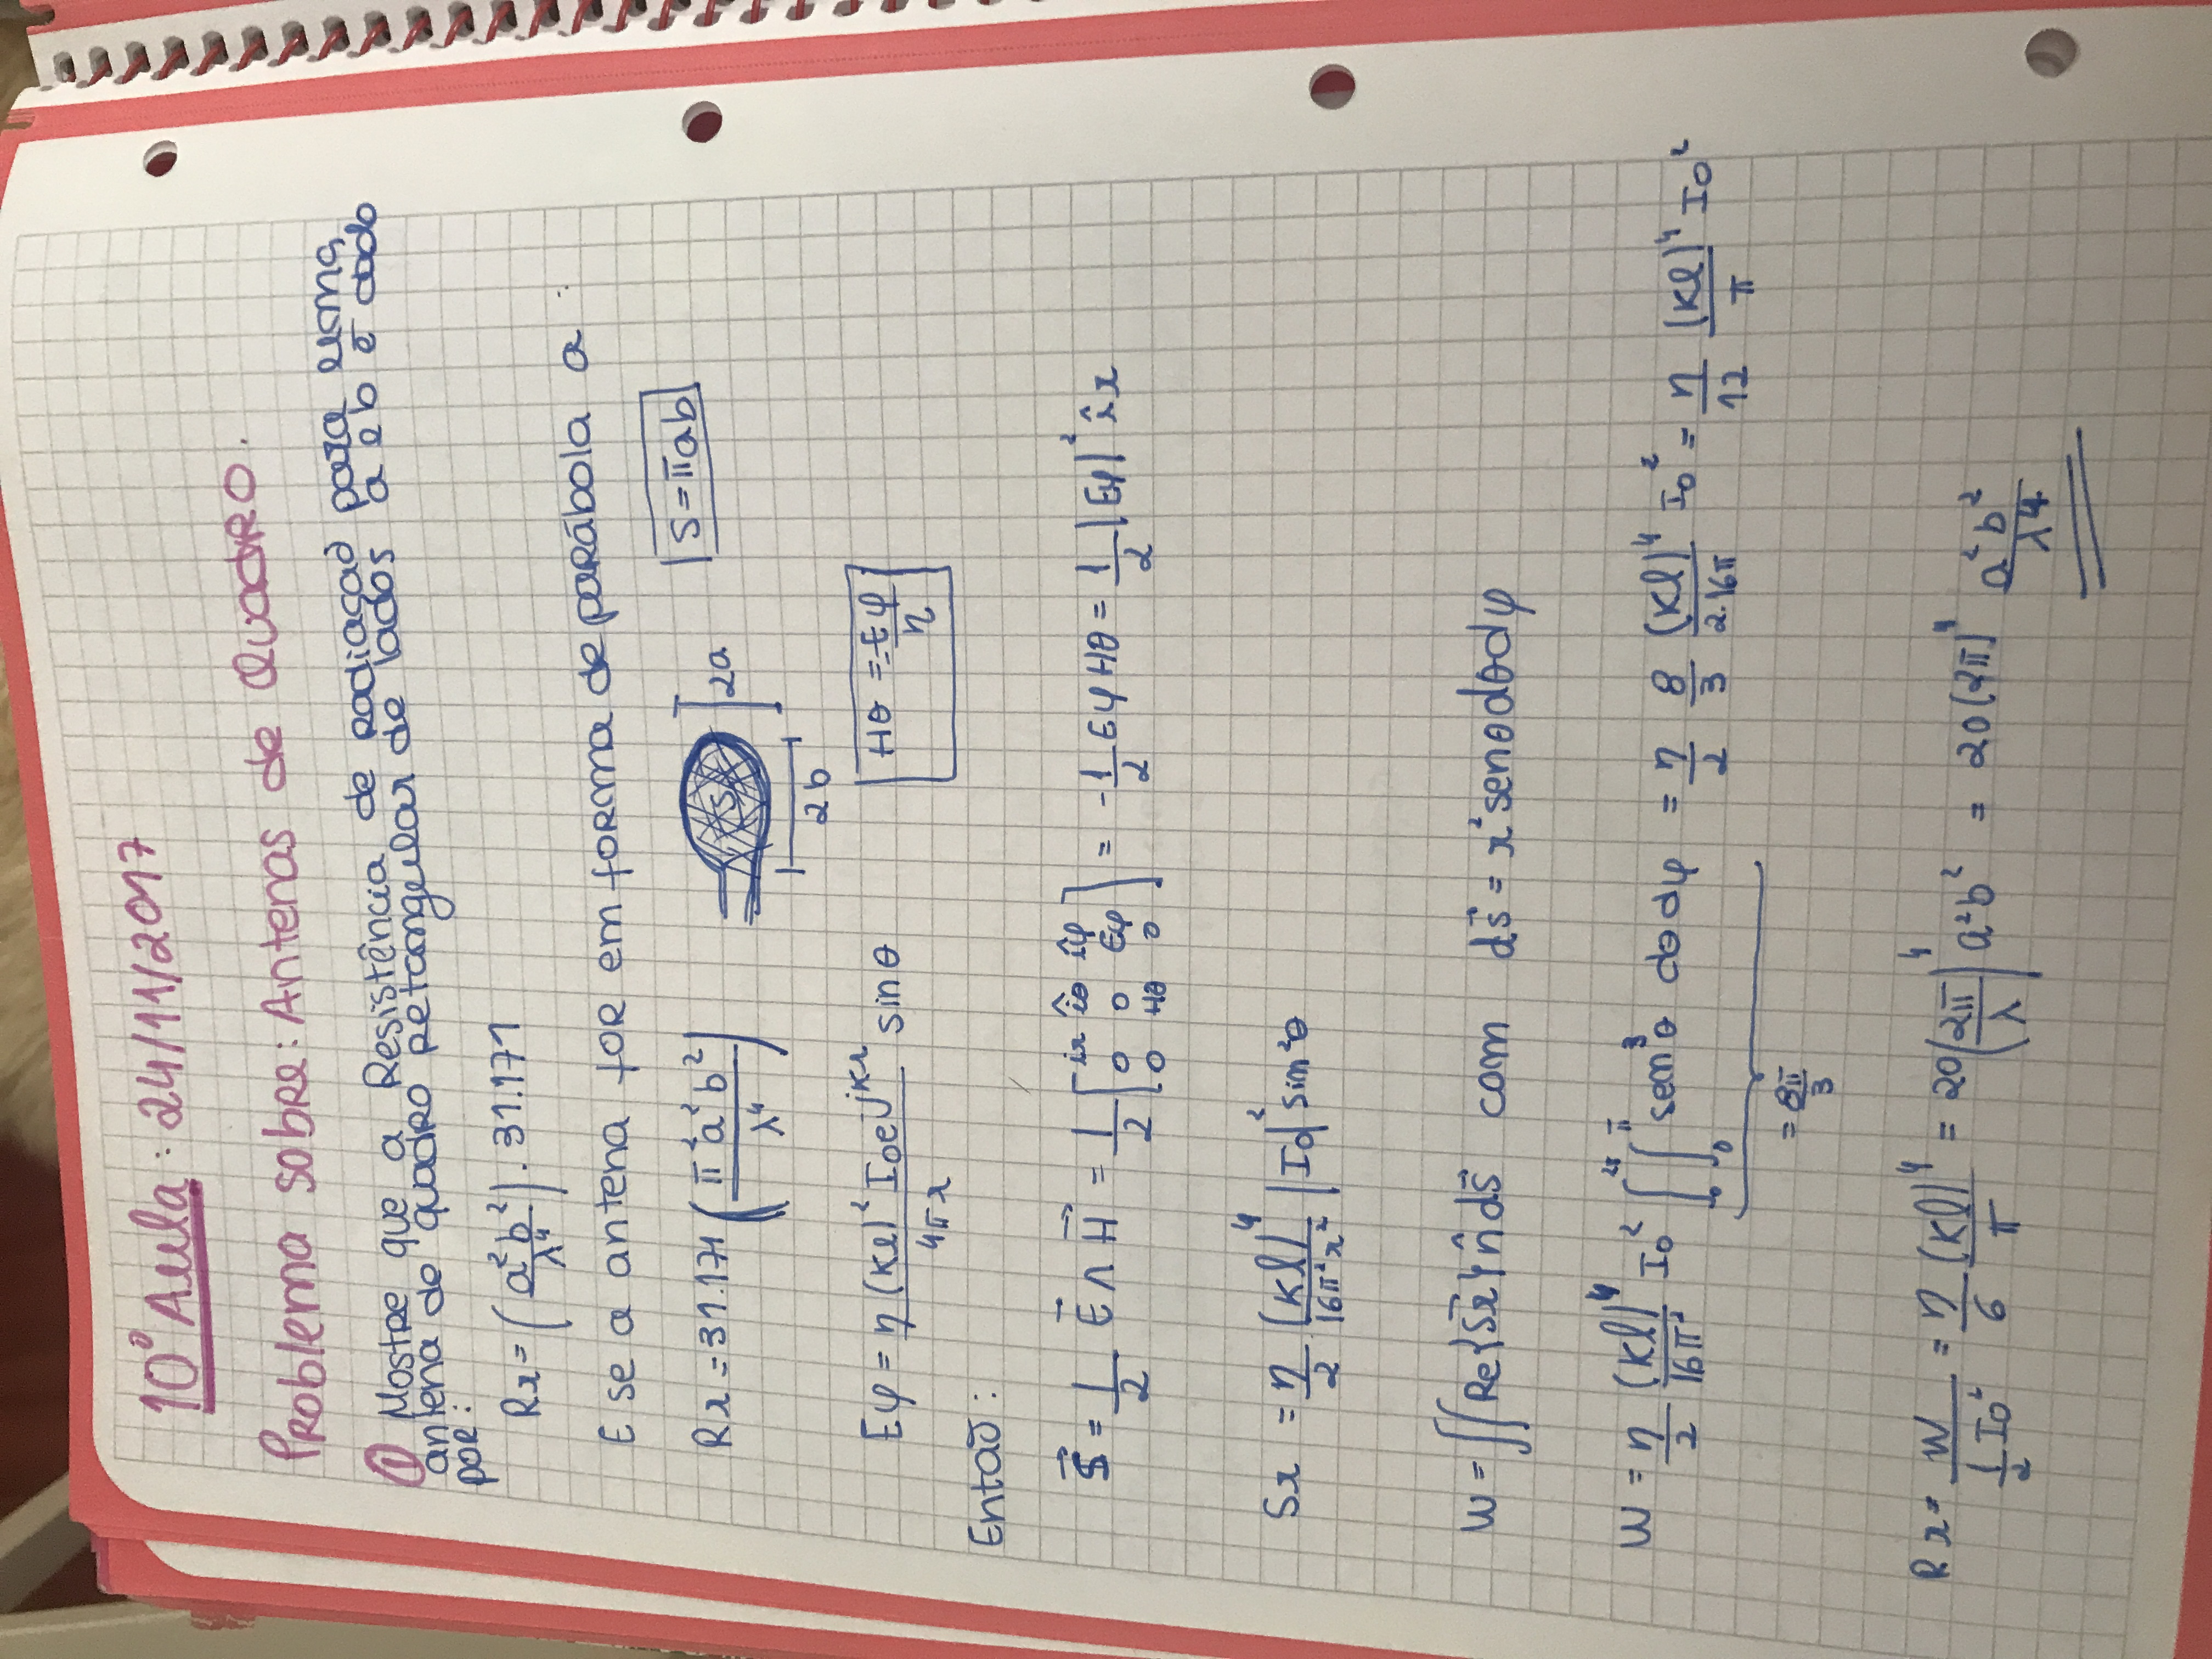 10º Aula: 24/11/2017
Problema sobre: Antenas de Quadro.
① Mostre que a Resistência de radiação para uma
antena de quadro retangular de lados a e b é dado
por:
Rr = (a²b²/λ⁴) . 31.171
E se a antena for em forma de parábola a:
Rr = 31.171 (π²a²b²/λ⁴)
S
2a
2b
S = πab
Eφ = η (kl)² I₀ e^-jkr / 4πr sin θ
Hθ = -Eφ/η
Então:
S⃗ = 1/2 E⃗ ∧ H⃗ = 1/2 [ir îθ îφ; 0 0 Eφ; 0 Hθ 0] = -1/2 Eφ Hθ = 1/2 |Eφ|² îr
Sr = η/2 (kl)⁴/16π²r² |I₀|² sin²θ
W = ∬ Re{S⃗r} n̂ ds⃗ com ds⃗ = r² senθ dθ dφ
W = η/2 (kl)⁴/16π² I₀² ∫₀^2π ∫₀^π sen³θ dθ dφ = η/2 8/3 (kl)⁴/2.16π I₀² = η/12 (kl)⁴/π I₀²
= 8π/3
Rr = W / 1/2 I₀² = η/6 (kl)⁴/π = 20 (2π/λ)⁴ a²b² = 20 (2π)⁴ a²b²/λ⁴